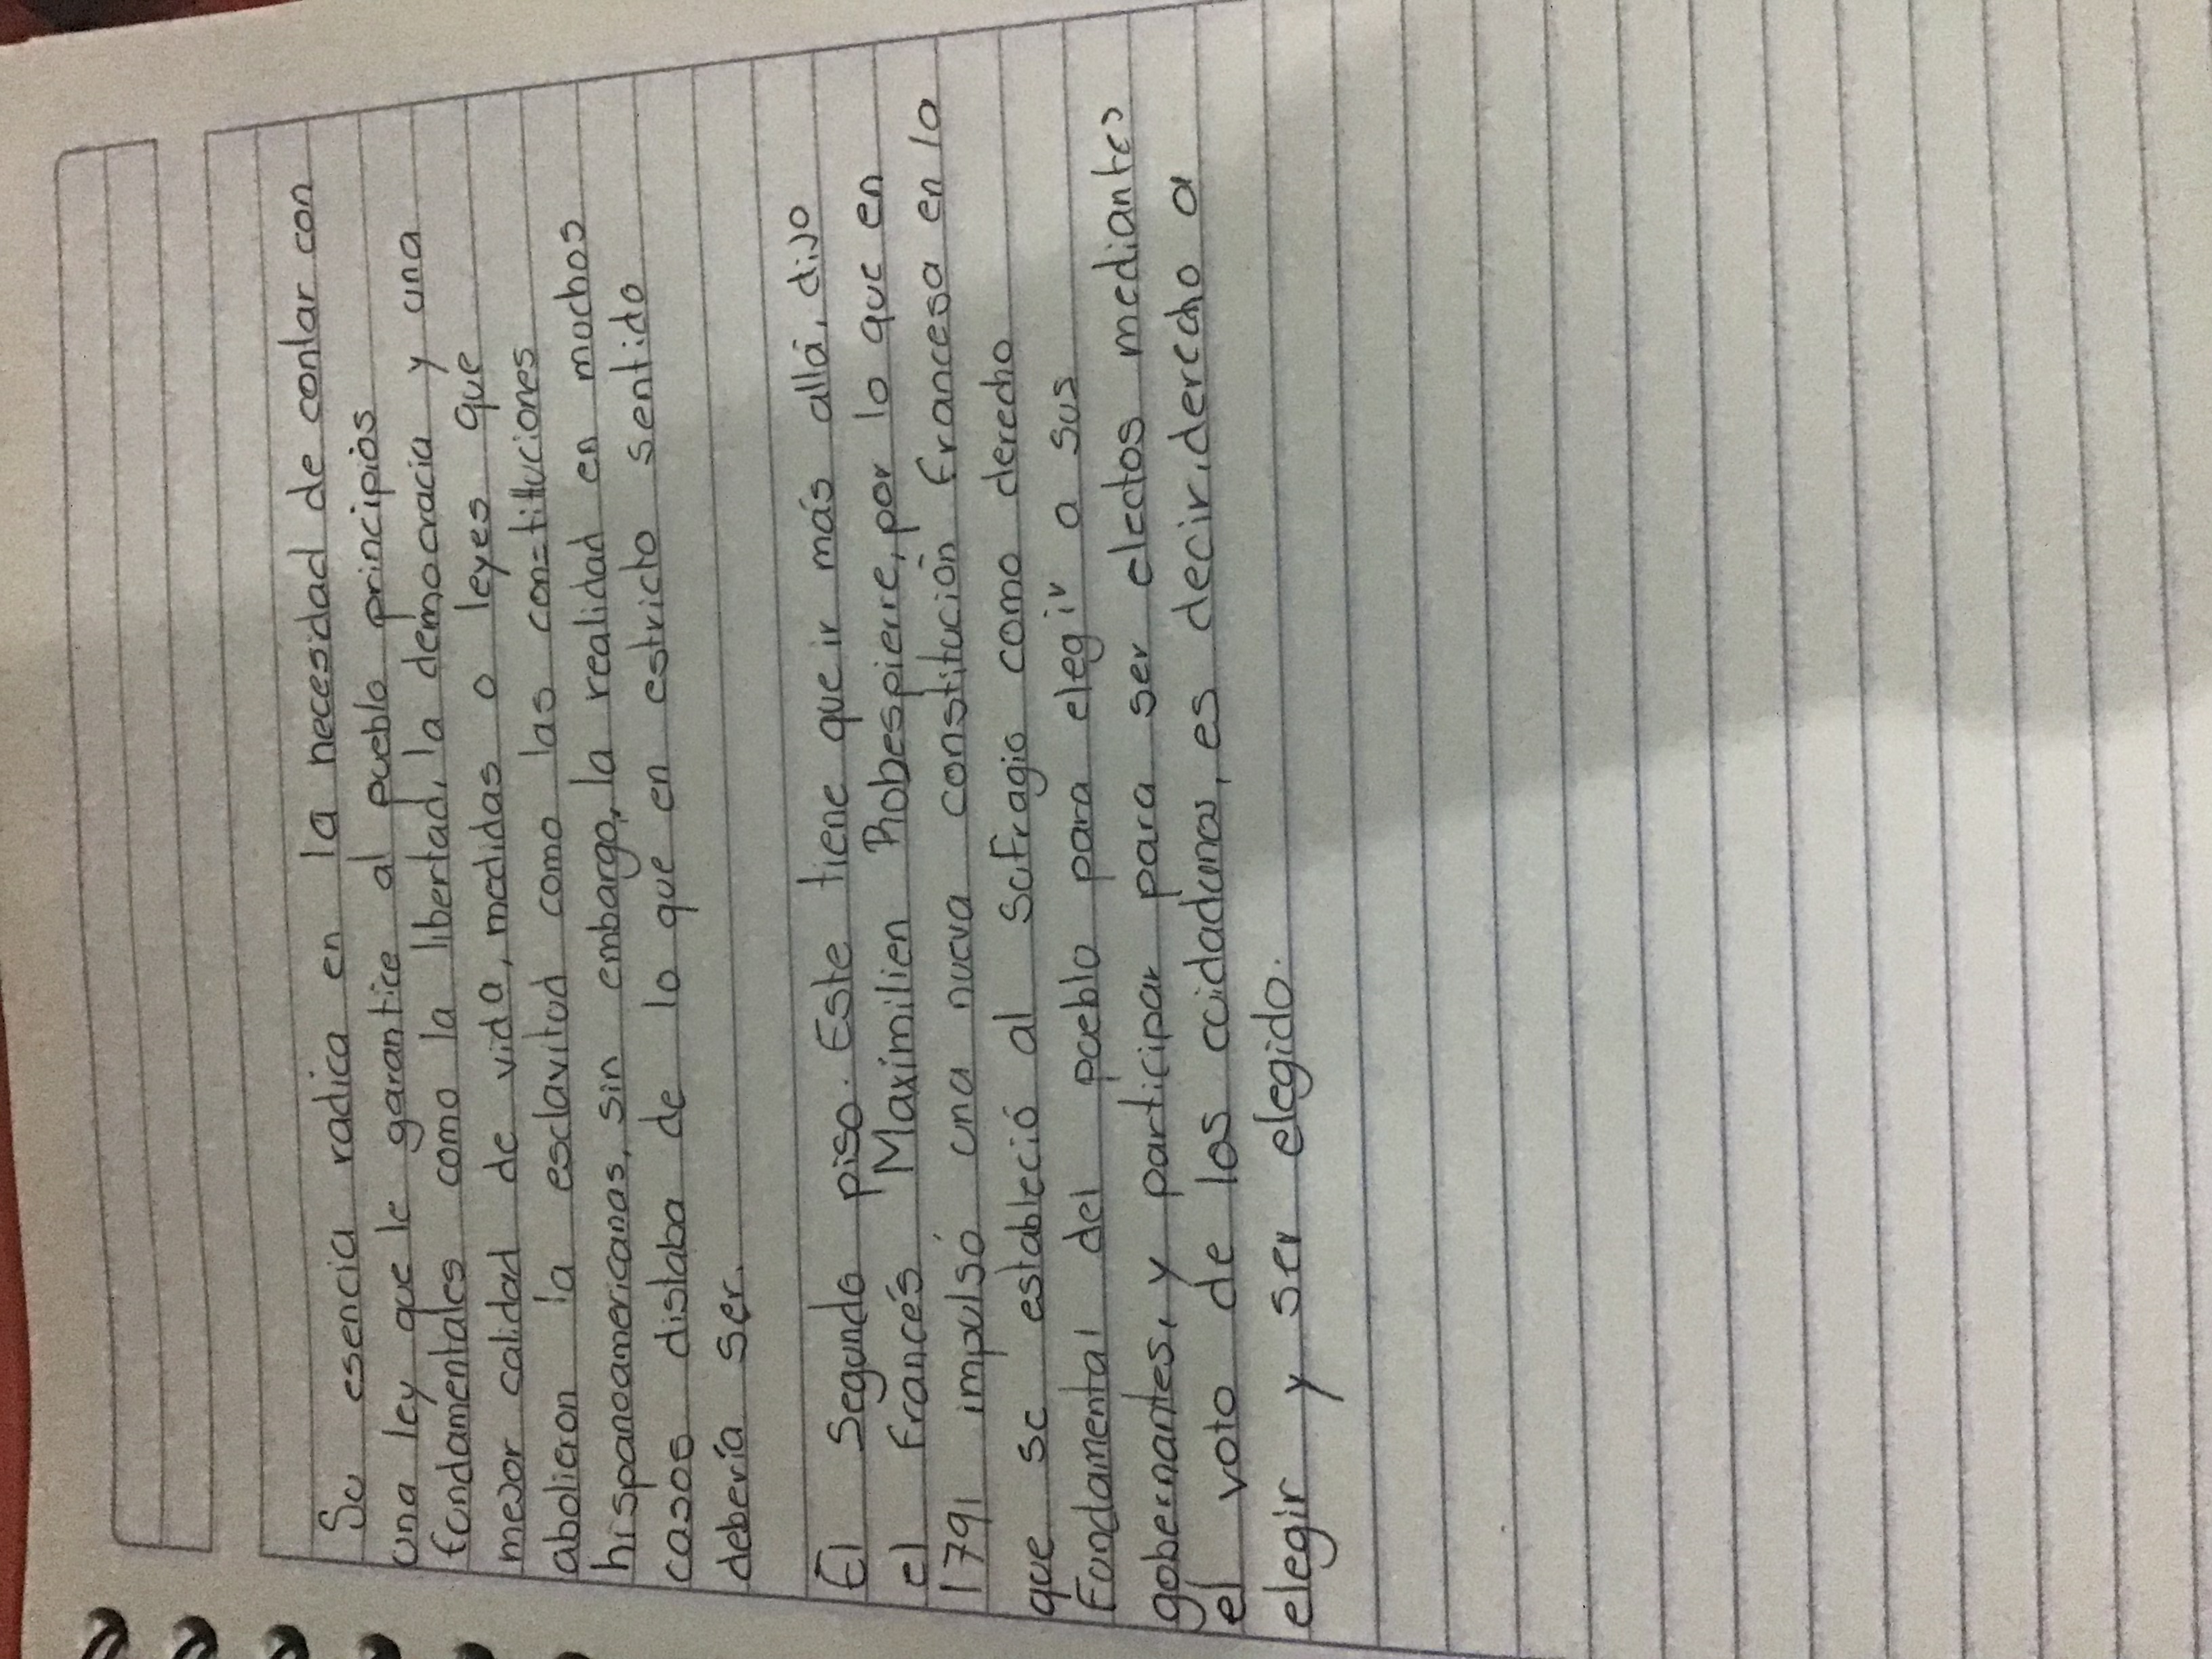 Su esencia radica en la necesidad de contar con
una ley que le garantice al pueblo principios
fundamentales como la libertad, la democracia y una
mejor calidad de vida, medidas o leyes que
abolieron la esclavitud como las con=tituciones
hispanoamericanas, sin embargo, la realidad en muchos
casos distaba de lo que en estricto sentido
debería ser.
El Segundo piso. Este tiene que ir más allá, dijo
el francés Maximilien Robespierre, por lo que en
1791 impulsó una nueva constitución francesa en la
que se estableció al sufragio como derecho
Fundamental del pueblo para elegir a sus
gobernantes, y participar para ser electos mediantes
el voto de los ciudadanos, es decir, derecho a
elegir y ser elegido.